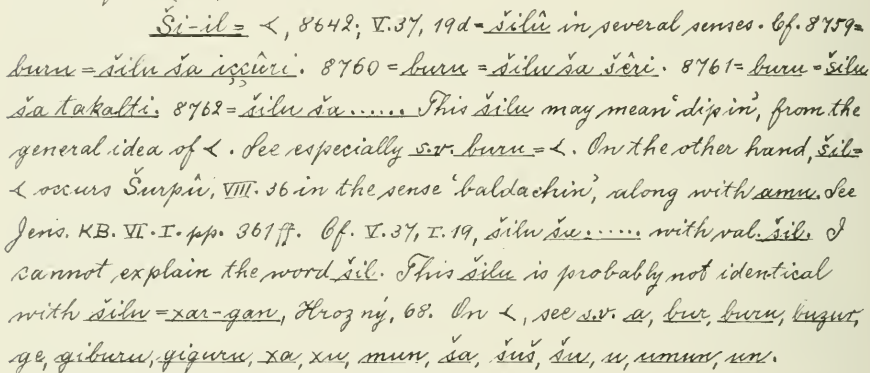 Ši-il = 𒌋, 8642; V. 37, 19d = šilû in several senses. Cf. 8759 =
buru = šilu ša iççûri. 8760 = buru = šilu ša šêri. 8761 = buru = šilu
ša takalti. 8762 = šilu ša ...... This šilu may mean 'dip in', from the
general idea of 𒌋. See especially s.v. buru = 𒌋. On the other hand, šil =
𒌋 occurs Šurpû, VIII. 36 in the sense 'baldachin', along with amu. See
Jens. KB. VI. I. pp. 361 ff. Cf. V. 37, I. 19, šilu ša ...... with val. šil. I
cannot explain the word šil. This šilu is probably not identical
with šilu = xar-gan, Hrozný, 68. On 𒌋, see s.v. a, bur, buru, buzur,
ge, giburu, giguru, xa, xu, mun, ša, šuš, šu, u, umun, un.